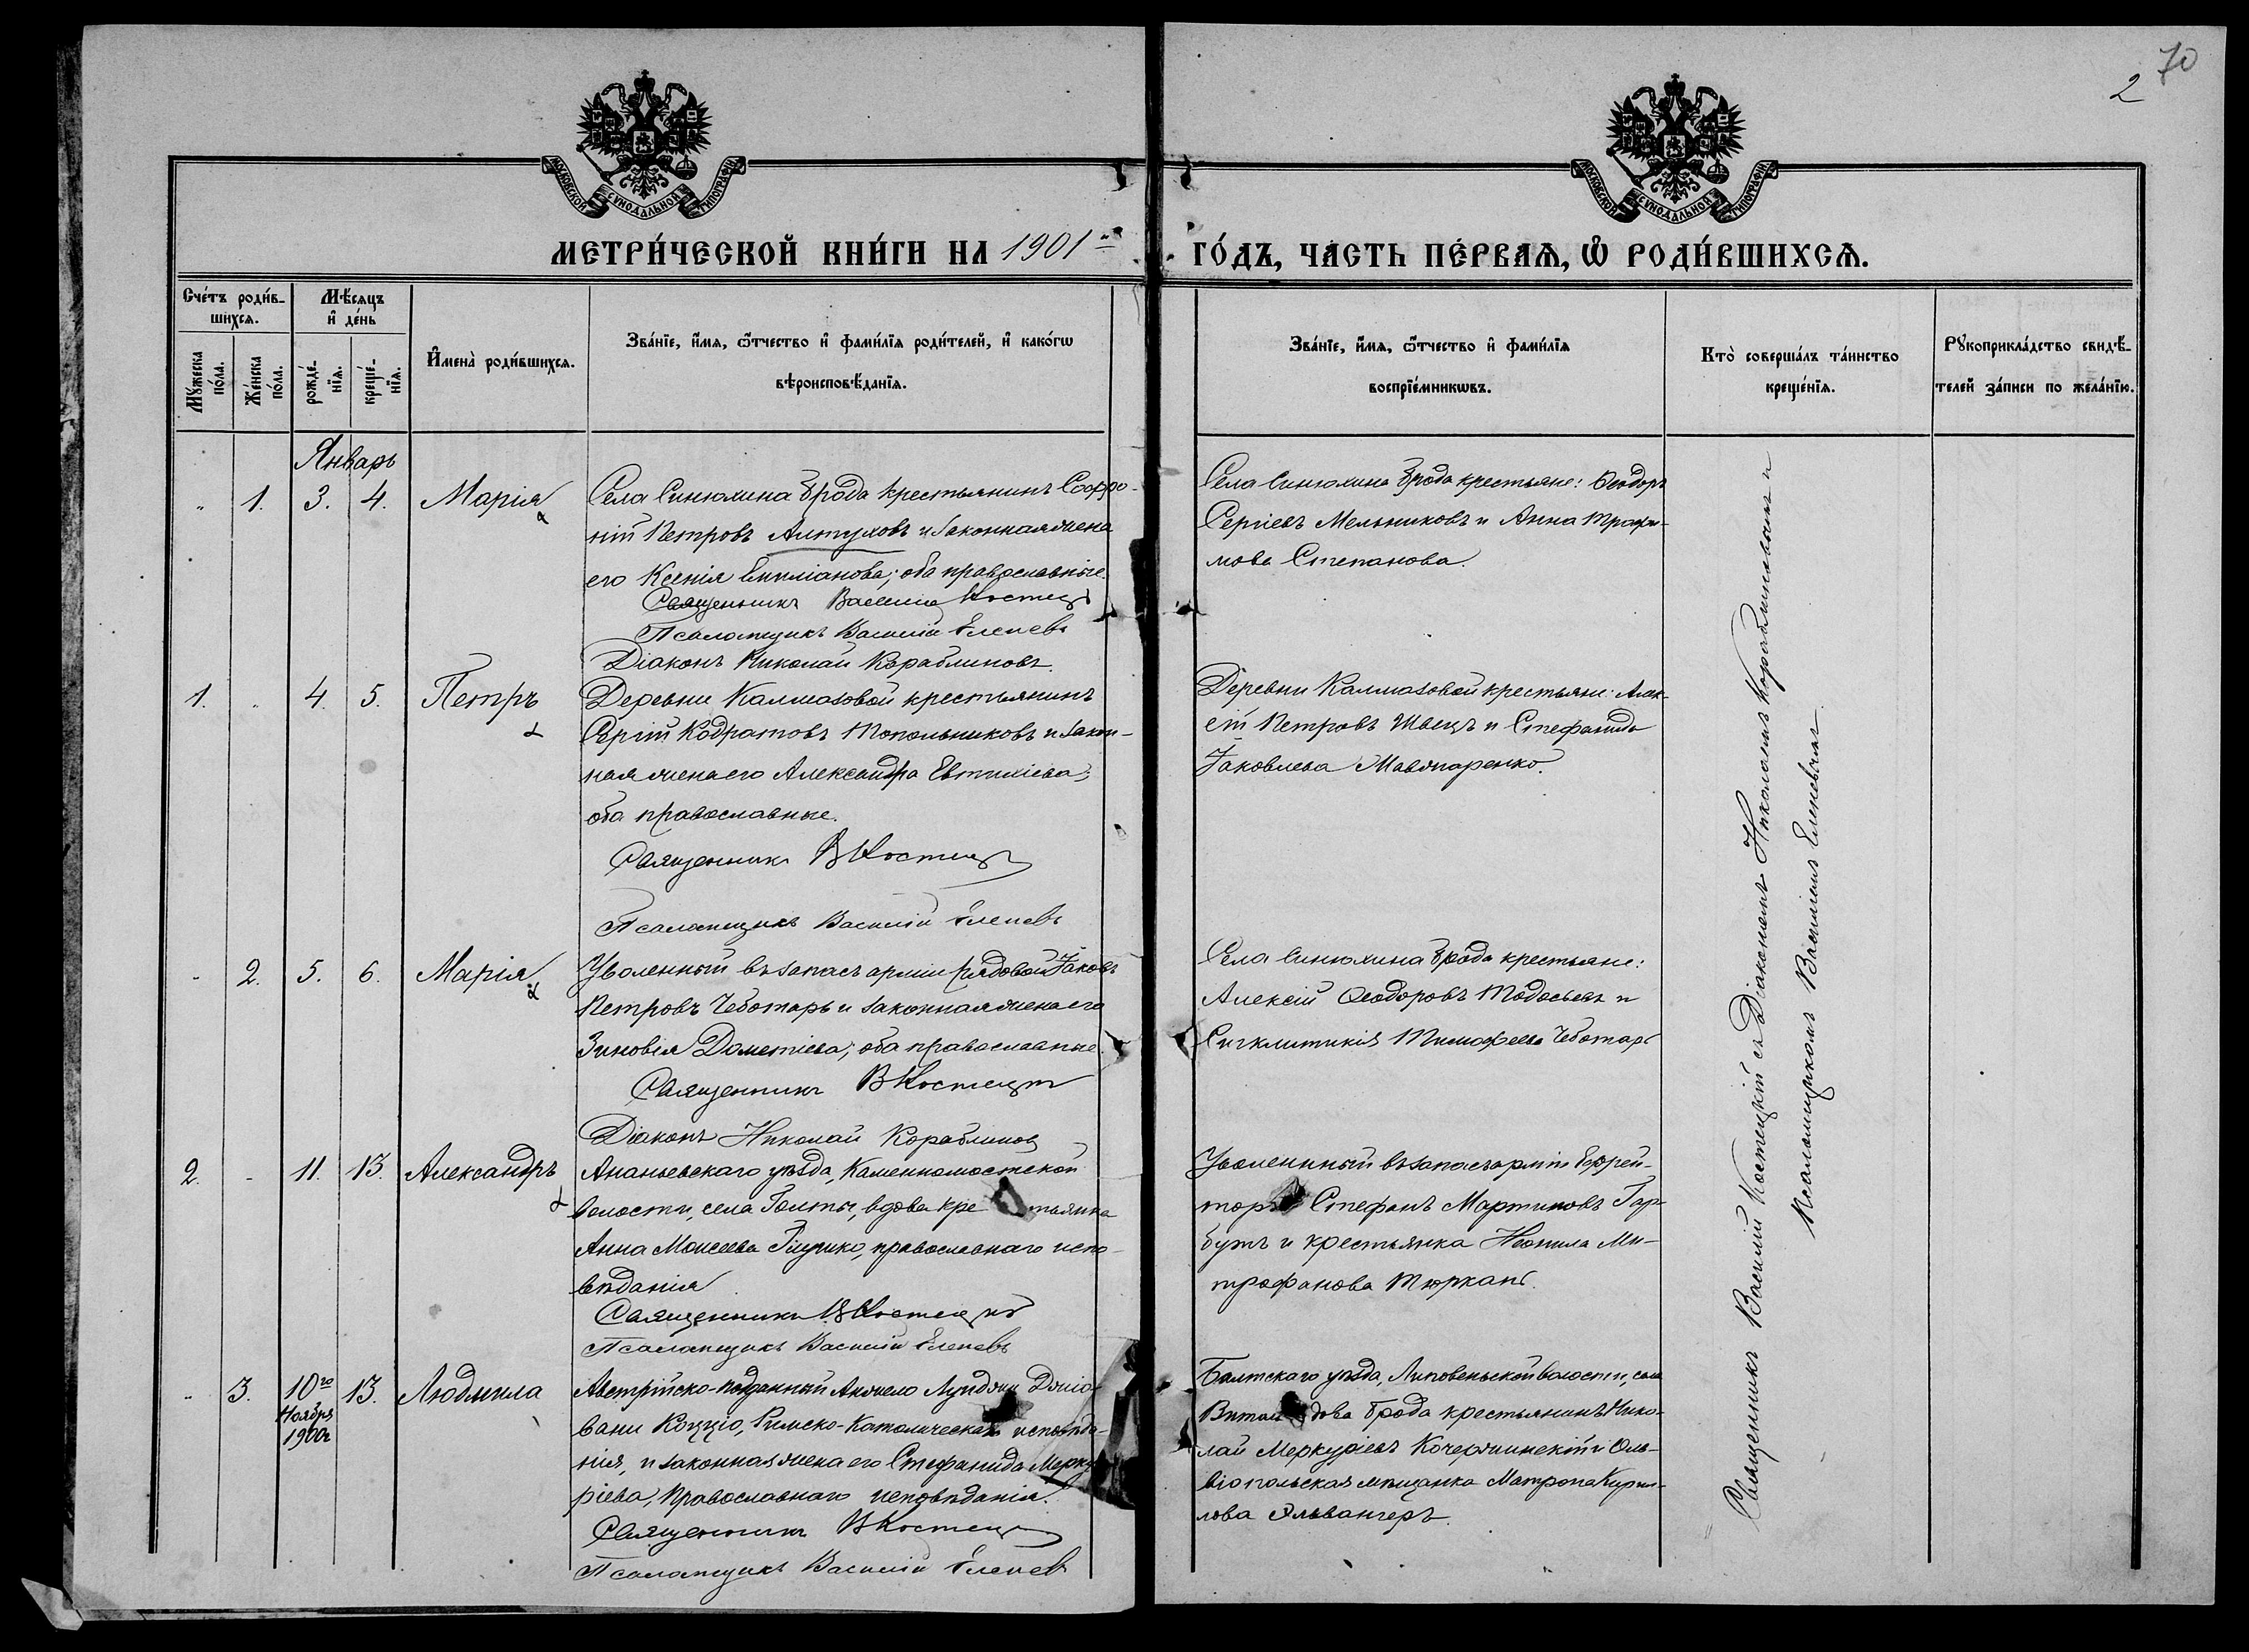 70
2
МОСКОВСКОЙ СУНОДАЛЬНОЙ ТИПОГРАФІИ
МОСКОВСКОЙ СУНОДАЛЬНОЙ ТИПОГРАФІИ
МЕТРИ́ЧЕСКОЙ КНИ́ГИ НА 1901 ГО́ДЪ, ЧА́СТЬ ПЕ́РВАѦ, Ѡ РОДИ́ВШИХСѦ.
Сче́тъ роди́в-
шихсѧ.
Мꙋжеска по́ла.
Же́нска по́ла.
Мѣ́сѧцъ и де́нь
рожде́-
нїѧ.
креще́-
нїѧ.
Имена̀ роди́вшихсѧ.
Зва́нїе, и́мѧ, ѻ́тчество и фами́лїѧ роди́телей, и како́гѡ
вѣроисповѣ́данїѧ.
Зва́нїе, и́мѧ, ѻ́тчество и фами́лїѧ
воспрїе́мникѡвъ.
Кто̀ соверша́лъ та́инство
креще́нїѧ.
Рꙋкоприкла́дство свидѣ́-
телей за́писи по жела́нїю.
Январь
1. 3. 4. Марія
Села Синюхина Брода крестьянинъ Софро-
ній Петровъ Алтуховъ и законная жена
его Ксенія Емиліанова; оба православные.
Священникъ Василій Костецкій
Псаломщикъ Василій Еленевъ
Діаконъ Николай Кораблиновъ
Села Синюхина Брода крестьяне: Ѳеодоръ
Сергіевъ Мельниковъ и Анна Трофи-
мова Степанова.
1. 4. 5. Петръ
Деревни Калмазовой крестьянинъ
Сергій Кодратовъ Топольниковъ и закон-
ная жена его Александра Евтихіева;
оба православные.
Священникъ В Костецкій
Псаломщикъ Василій Еленевъ
Деревни Калмазовой крестьяне: Алек-
сій Петровъ Швецъ и Стефанида
Іаковлева
2. 5. 6. Марія
Уволенный въ запасъ арміи рядовой Іаковъ
Петровъ Чеботарь и законная жена его
Зиновія Дометіева; оба православные.
Священникъ В Костецкій
Діаконъ Николай Кораблиновъ
Села Синюхина Брода крестьяне:
Алексій Ѳеодоровъ Тодосьевъ и
Сигклитикія Тимофеева Чеботарь
2. 11. 13. Александръ
Ананьевскаго уѣзда, Каменномостской
волости, села Голты, вдова кре тьянка
Анна Моисеева православнаго испо-
вѣданія
Священникъ В Костецкій
Псаломщикъ Василій Еленевъ
Уволенный въ запасъ арміи Ефрей-
торъ Стефанъ Мартиновъ Гар-
бузъ и крестьянка Неонила Ми-
трофанова Тюрканъ.
3. 10го Ноября 1900г. 13. Людмила
Австрійско-подданный Анжело
вани Римско-Католическаго исповѣда-
нія, и законная жена его Стефанида Мерку-
ріева, Православнаго исповѣданія.
Священникъ В Костецкій
Псаломщикъ Василій Еленевъ
Балтскаго уѣзда, Липовеньской волости, села
Брода крестьянинъ Нико-
лай Меркуріевъ Кочержинскій и Оль-
віопольская мѣщанка Матрона Кирил-
лова
Священникъ Василій Костецкій съ Діакономъ Николаемъ Кораблиновымъ и
Псаломщикомъ Василіемъ Еленевымъ